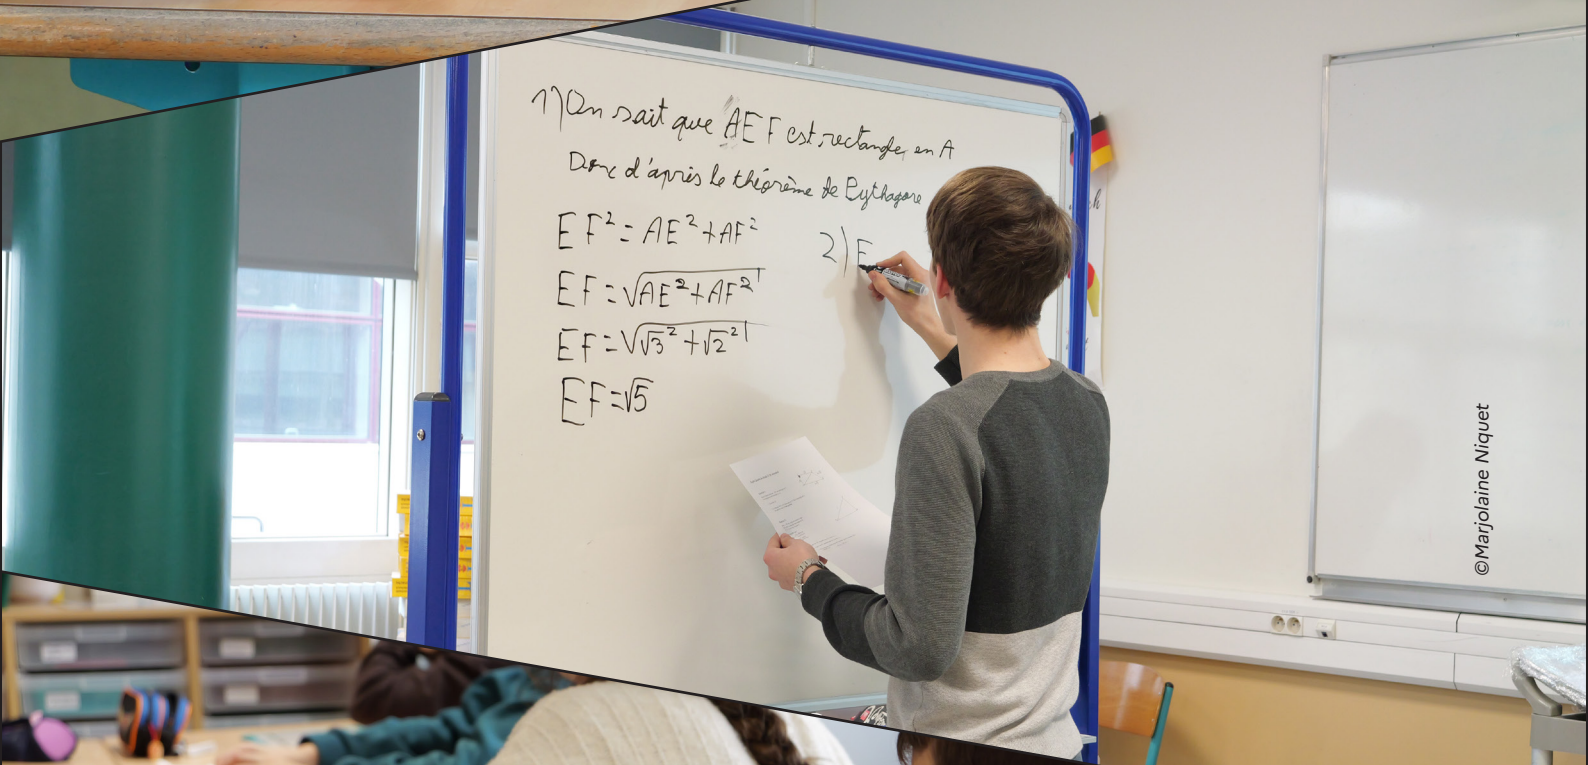 1) On sait que AEF est rectangle en A
Donc d'après le théorème de Pythagore
EF² = AE² + AF²
EF = √(AE² + AF²)
EF = √(√3² + √2²)
EF = √5
2) E
h
©Marjolaine Niquet